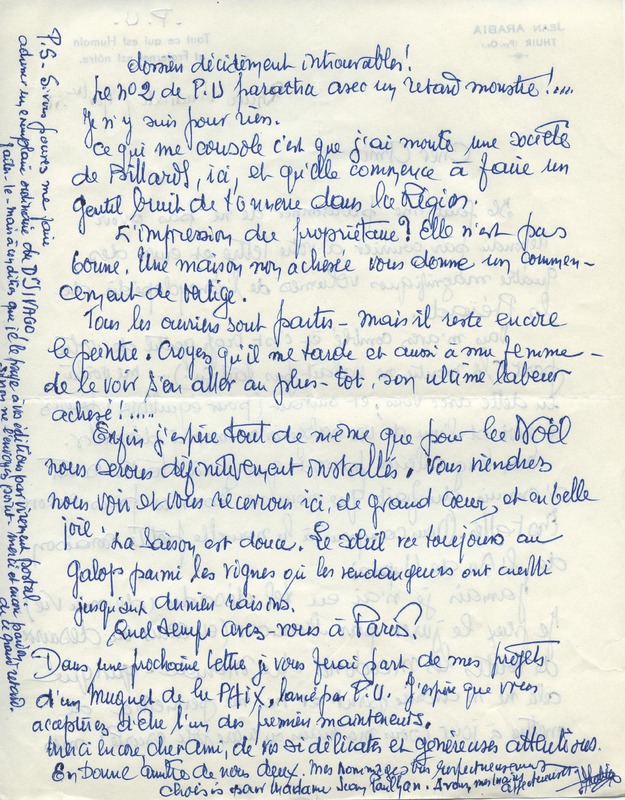 dossier décidément introuvables !
Le nº 2 de P.U paraitra avec un retard monstre !....
Je n'y suis pour rien.
Ce qui me console c'est que j'ai monté une société
de Billards, ici, et qu'elle commence à faire un
gentil bruit de tonnerre dans la Région.
L'impression du propriétaire ? Elle n'est pas
bonne. Une maison non achevée vous donne un commen-
cement de vertige.
Tous les ouvriers sont partis - mais il reste encore
le peintre. Croyez qu'il me tarde et aussi à ma femme -
de le voir s'en aller au plus-tot, son ultime labeur
achevé !....
Enfin j'espère tout de même que pour la Noël
nous serons définitivement installés. Vous viendrez
nous voir et vous recevrons ici, de grand cœur, et en belle
joie.
La saison est douce. Le soleil va toujours au
galop parmi les vignes où les vendangeurs ont cueilli
jusqu'aux derniers raisins.
Quel temps avez-vous à Paris ?
Dans une prochaine lettre je vous ferai part de mes projets
d'un muguet de la PAIX, lancé par P.U. J'espère que vous
accepterez d'être l'un des premiers mainteneurs.
Merci encore, cher ami, de vos si délicates et généreuses attentions.
En bonne amitié de nous deux. Mes hommages très respectueusement
choisis pour Madame Jean Paulhan. A vous, mes mains
affectueuses
P.S - Si vous pouvez me faire
adresser un exemplaire ordinaire du DSJIVAGO
faites-le - mais à condition que je le paye à vos éditions par virement postal.
Sinon ne l'envoyez point - merci et encore pardon
de ce grand retard.
JEAN ARABIA
THUIR (Pyr.-Or.)
P.U.
Tout ce qui est Humain